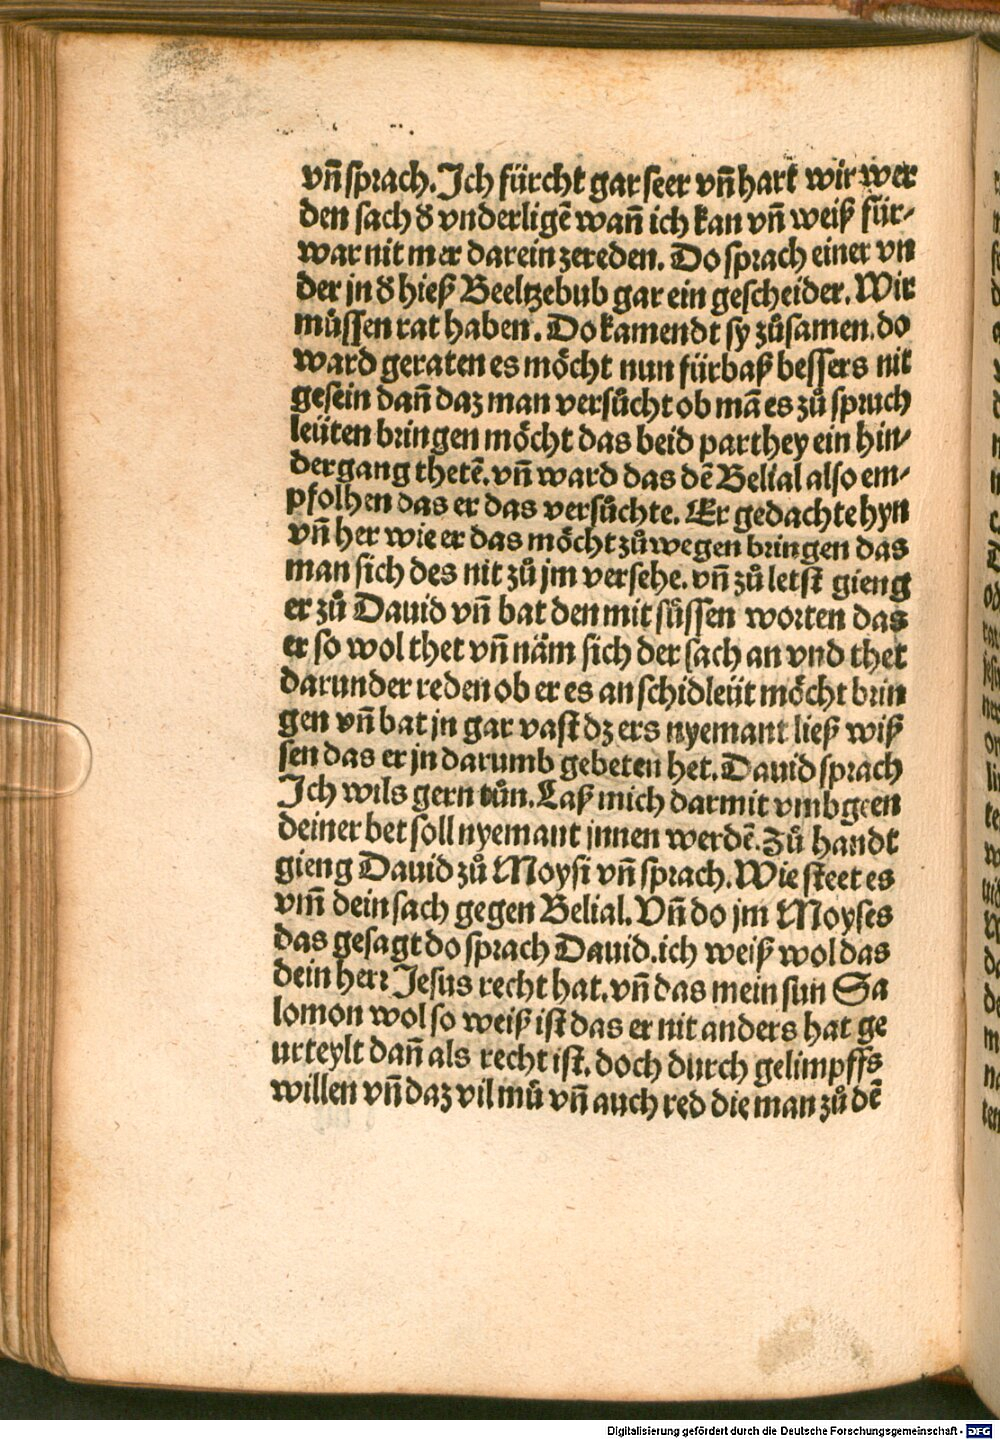 vn̄ sprach. Ich fürcht gar seer vn̄ hart wir wer
den sach d̕ vnderligē wan̄ ich kan vn̄ weiß für⸗
war nit mer darein zereden. Do sprach einer vn
der jn d̕ hieß Beeltzebub gar ein gescheider. Wir
müssen rat haben. Do kamendt sy zůsamen. do
ward geraten es möcht nun fürbaß bessers nit
gesein dan̄ daz man versůcht ob mā es zů spruch
leüten bringen möcht das beid parthey ein hin⸗
dergang thetē. vn̄ ward das dē Belial also em⸗
pfolhen das er das versůchte. Er gedachte hyn
vn̄ her wie er das möcht zů wegen bringen das
man sich des nit zů jm versehe. vn̄ zů letst gieng
er zů Dauid vn̄ bat den mit süssen worten das
er so wol thet vn̄ näm sich der sach an vnd thet
darunder reden ob er es an schidleüt möcht brin
gen vn̄ bat jn gar vast dz ers nyemant ließ wiß
sen das er jn darumb gebeten het. Dauid sprach
Ich wils gern tůn. Laß mich darmit vmbgeen
deiner bet soll nyemant jnnen werdē. Zů handt
gieng Dauid zů Moysi vn̄ sprach. Wie steet es
vm̄ dein sach gegen Belial. Vn̄ do jm Moyses
das gesagt do sprach Dauid. ich weiß wol das
dein herr Jesus recht hat. vn̄ das mein sun Sa
lomon wol so weiß ist das er nit anders hat ge
urteylt dan̄ als recht ist. doch durch gelimpffs
willen vn̄ daz vil mů vn̄ auch red die man zů dē
Digitalisierung gefördert durch die Deutsche Forschungsgemeinschaft - DFG